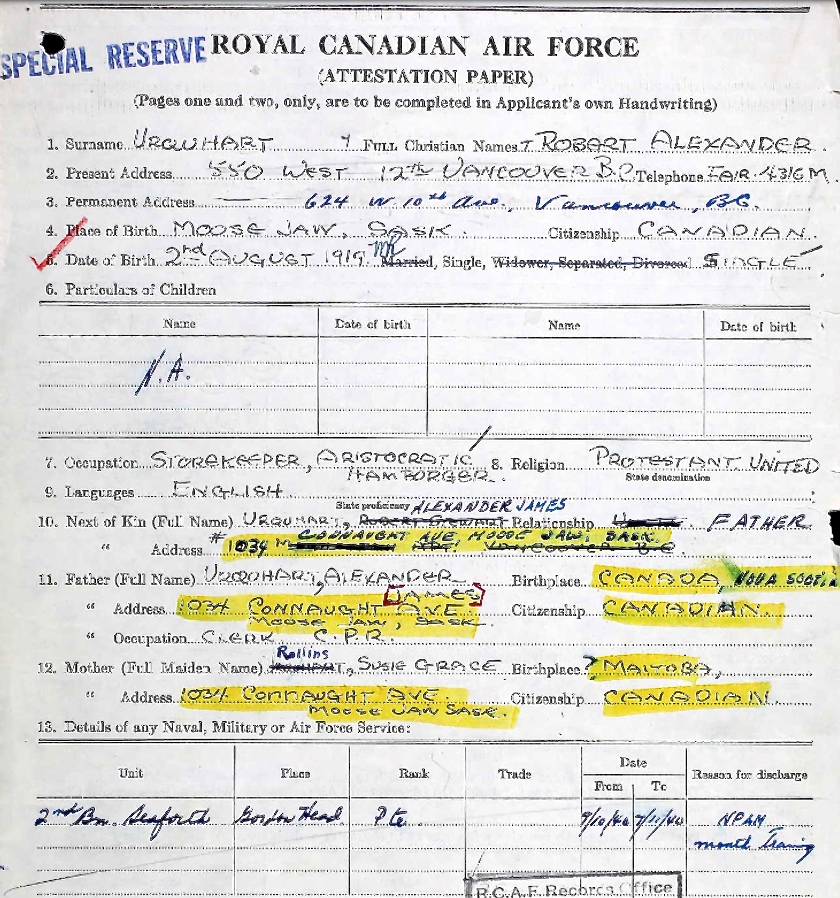 SPECIAL RESERVE
ROYAL CANADIAN AIR FORCE
(ATTESTATION PAPER)
(Pages one and two, only, are to be completed in Applicant's own Handwriting)
1. Surname URQUHART Full Christian Names ROBART ALEXANDER.
2. Present Address 550 WEST 12th VANCOUVER B.C. Telephone FAIR. 4316 M.
3. Permanent Address 624 W. 10th Ave., Vancouver, B.C.
4. Place of Birth MOOSE JAW, SASK. Citizenship CANADIAN.
5. Date of Birth 2nd AUGUST 1919. Married, Single, Widower, Separated, Divorced SINGLE
6. Particulars of Children
Name Date of birth Name Date of birth
N.A.
7. Occupation STOREKEEPER, ARISTOCRATIC 8. Religion PROTESTANT UNITED
HAMBORGER. State denomination
9. Languages ENGLISH
State proficiency ALEXANDER JAMES
10. Next of Kin (Full Name) URQUHART, ROBERT STEWART Relationship FATHER
# CONNAUGHT AVE, MOOSE JAW, SASK.
" Address 1034 VANCOUVER B.C.
11. Father (Full Name) URQUHART, ALEXANDER Birthplace CANADA, NOVA SCOTIA
JAMES
" Address 1034 CONNAUGHT AVE Citizenship CANADIAN.
MOOSE JAW, SASK.
" Occupation CLERK C.P.R.
Rollins
12. Mother (Full Maiden Name) URQUHART, SUSIE GRACE Birthplace ? MAITOBA,
" Address 1034 CONNAUGHT AVE. Citizenship CANADIAN.
MOOSE JAW SASK.
13. Details of any Naval, Military or Air Force Service:
Unit Place Rank Trade Date Reason for discharge
From To
2nd Bn. Seaforth Gordon Head. Pte. 7/10/40 7/11/40 NPAM
month Training
R.C.A.F. Records Office